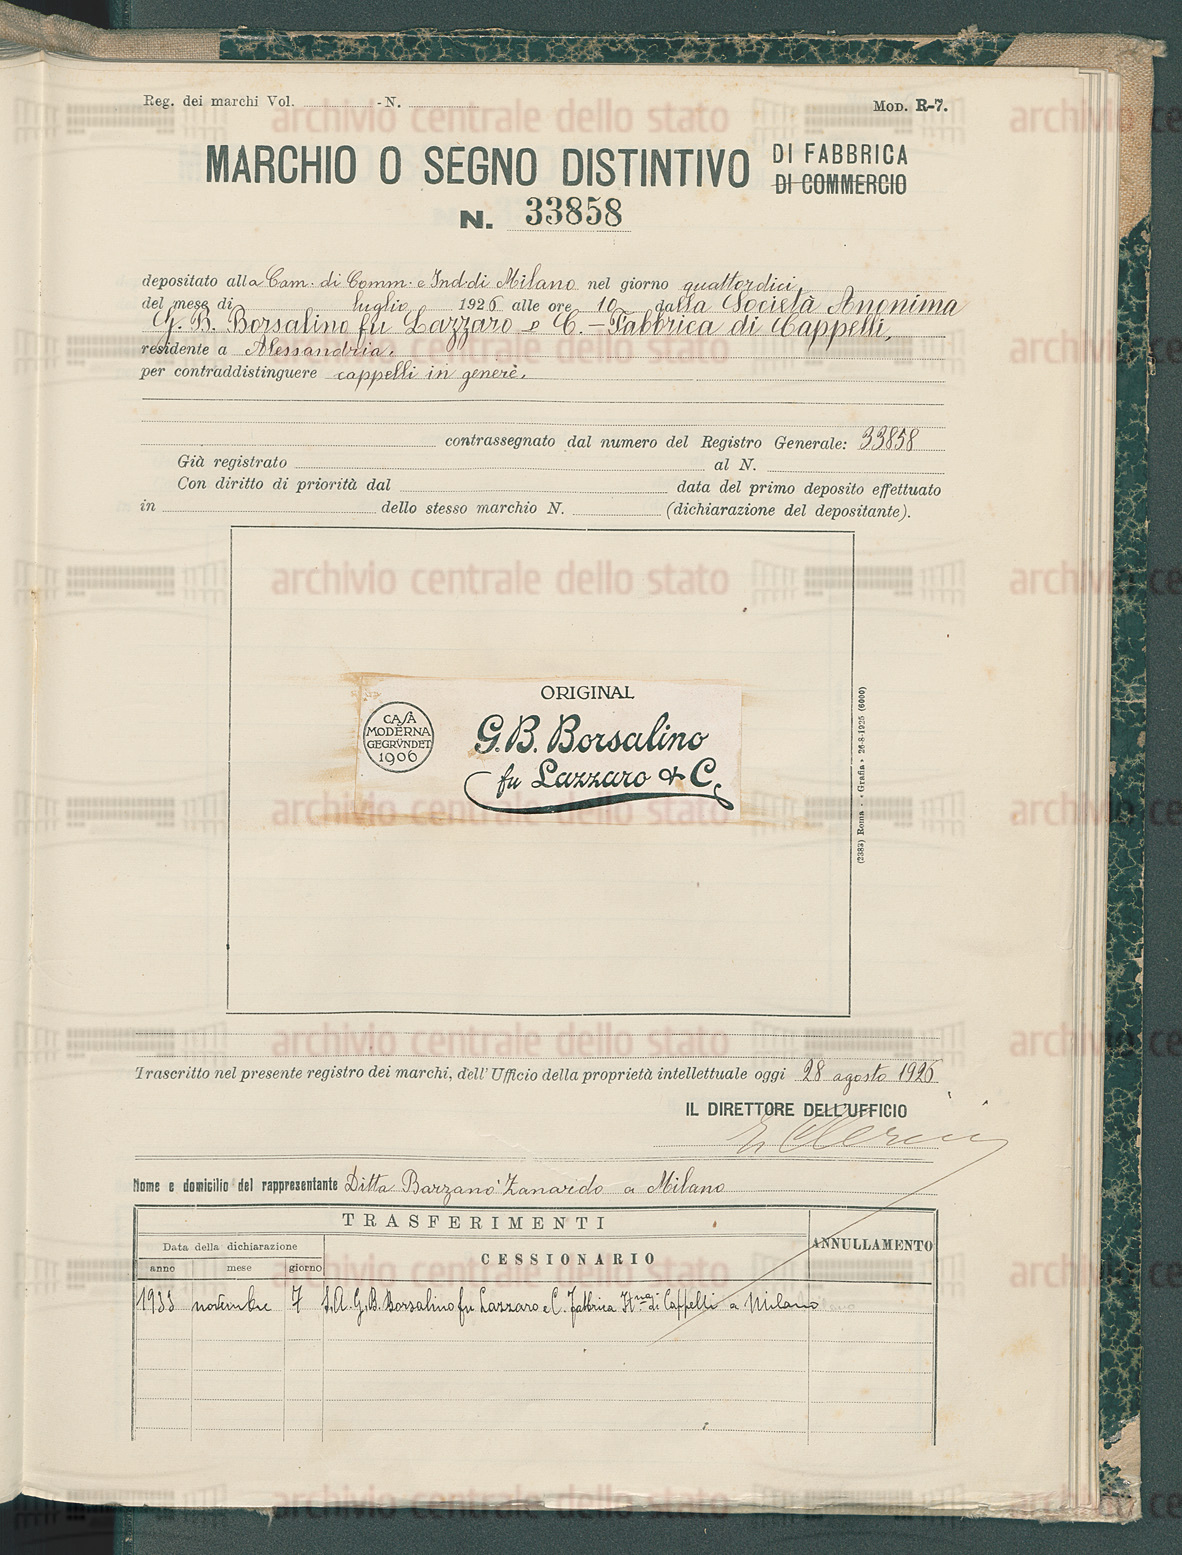 Reg. dei marchi Vol. - N.
MOD. R-7.
MARCHIO O SEGNO DISTINTIVO DI FABBRICA
DI COMMERCIO
N. 33858
depositato alla Cam. di Comm. e Ind. di Milano nel giorno quattordici
del mese di luglio 1926 alle ore 10 dalla Società Anonima
G. B. Borsalino fu Lazzaro e C. - Fabbrica di Cappelli,
residente a Alessandria.
per contraddistinguere cappelli in genere.
contrassegnato dal numero del Registro Generale: 33858
Già registrato al N.
Con diritto di priorità dal data del primo deposito effettuato
in dello stesso marchio N. (dichiarazione del depositante).
ORIGINAL
CASA
MODERNA
GEGRÜNDET
1906
G. B. Borsalino
fu Lazzaro & C.
(2383) Roma - « Grafia » 26-8-1925 (6000)
Trascritto nel presente registro dei marchi, dell'Ufficio della proprietà intellettuale oggi 28 agosto 1926
IL DIRETTORE DELL'UFFICIO
Nome e domicilio del rappresentante Ditta Barzanò Zanardo a Milano
TRASFERIMENTI
Data della dichiarazione
CESSIONARIO
ANNULLAMENTO
anno mese giorno
1933 novembre 7 S.A. G.B. Borsalino fu Lazzaro e C. Fabbrica It.na di Cappelli a Milano
archivio centrale dello stato